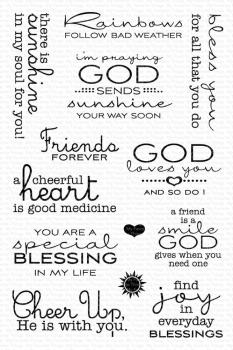 there is
sunshine
in my soul for you!
Rainbows
FOLLOW BAD WEATHER
bless you
for all that you do
i'm praying
GOD
SENDS
sunshine
YOUR WAY SOON
Friends
FOREVER
GOD
loves you
AND SO DO I
a cheerful
heart
is good medicine
a friend
is a
smile
GOD
gives when you
need one
YOU ARE A
special
BLESSING
IN MY LIFE
find
joy
in
everyday
BLESSINGS
Cheer Up,
He is with you.